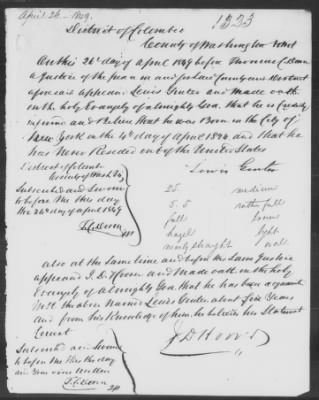 April 26 - 1849.
1323
District of Columbia
County of Washington to wit
On this 26th day of April 1849 before Thomas C Donn
a Justice of the peace in and for said County and District
aforesaid appeared Lewis Genter and made oath
on the holy Evangely of almighty God. that he is
and that he was Born in the City of
New York on the 4th day of April 1824 and that he
has Never Resided out of the United States
Lewis Genter
District of Columbia
County of Wash
Subscribed and Sworn
to before Me this day
the 26th day of april 1849
T C Donn JP
25 medium
5.5 rather full
full brown
hazel light
nearly straight oval
also at the Same time and before the Same Justice
appeared J. D. Hoover and Made oath on the holy
Evangely of almighty God that he has been acquainted
With the above Named Lewis Genter about five Years
and from his Knowledge of him he believes his Statement
Correct
J D Hoover
Subscribed and Sworn
to before Me this day
and Year above written
T C Donn JP